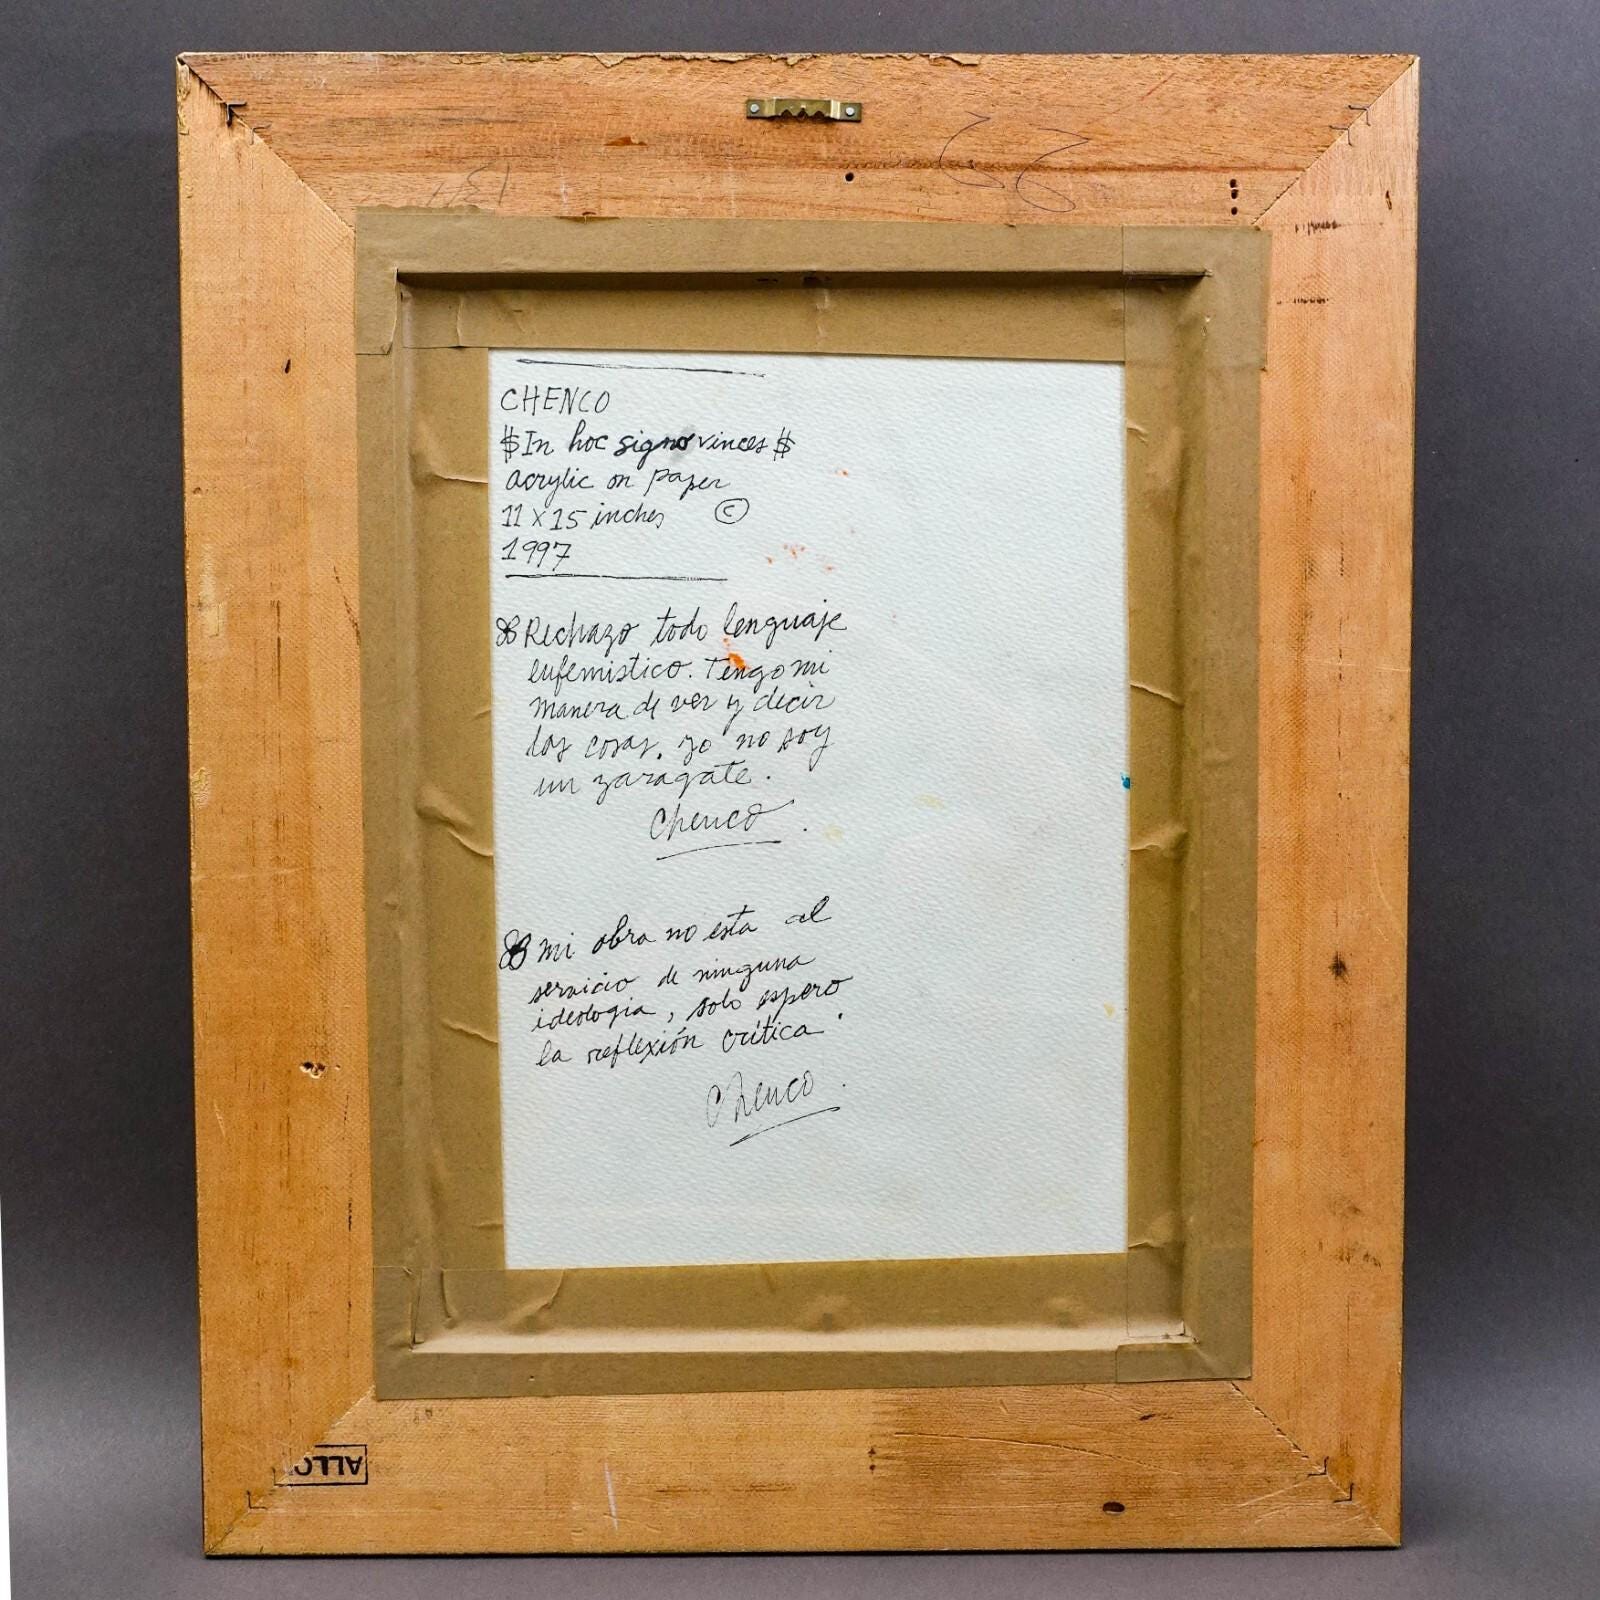 CHENCO
$ In hoc signo vinces $
acrylic on paper
11 x 15 inches ©
1997
Rechazo todo lenguaje
eufemistico. Tengo mi
manera de ver y decir
las cosas. yo no soy
un zaragate.
Chenco.
mi obra no esta al
servicio de ninguna
ideologia, solo espero
la reflexión crítica.
Chenco.